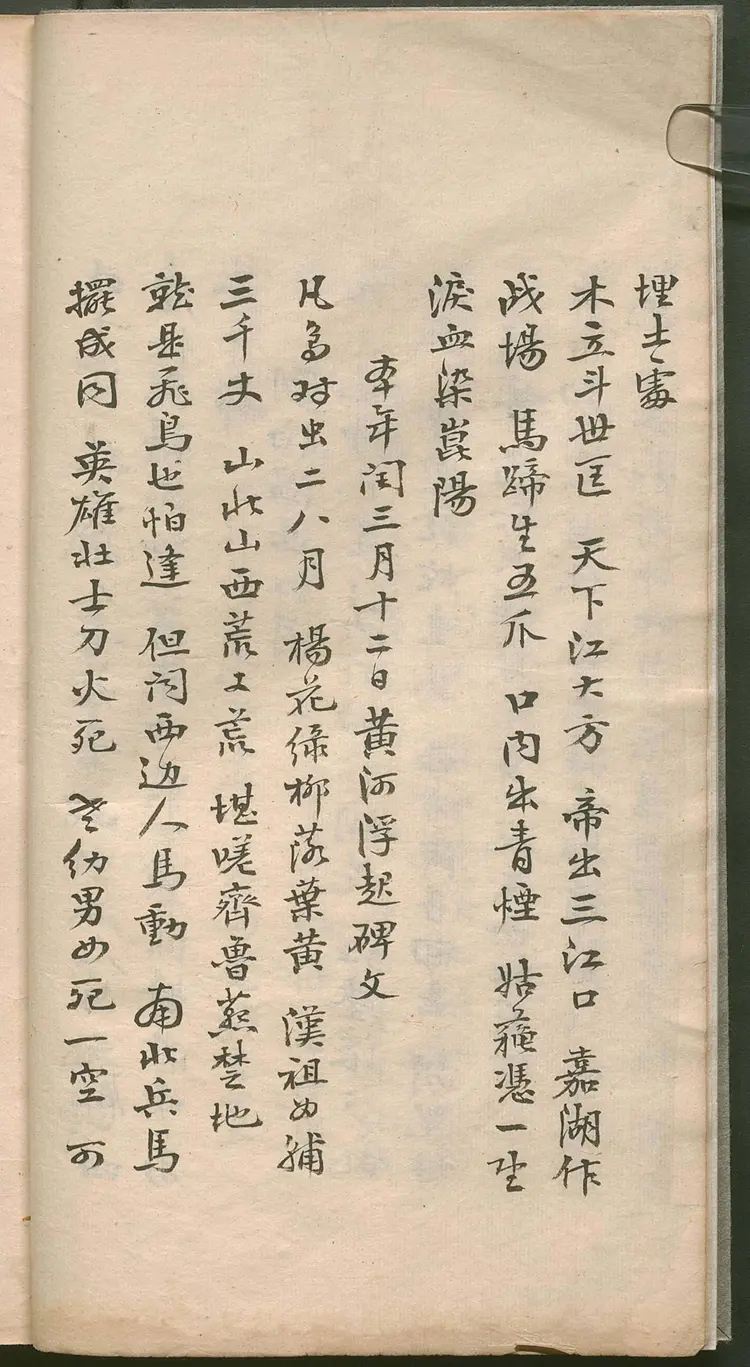 埋土處
木立斗世匡 天下江大方 帝出三江口 嘉湖作
战場 馬蹄生五爪 口内出青煙 姑蘓憑一望
淚血染崑陽
本年闰三月十二日黄河浮起碑文
凡鳥对虫二八月 楊花绿柳落葉黄 漢祖如蒲
三千丈 山北山西荒又荒 堪嗟齊魯燕楚地
就是飛鳥也怕逢 但闻西边人馬動 南北兵馬
擺成同 英雄壮士刀火死 老幼男女死一空 可